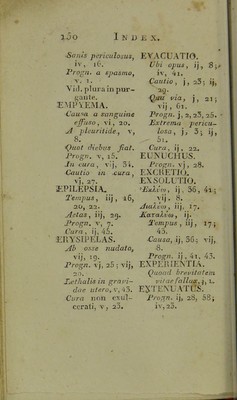 250 INDEX.
Sanis periculosus,
iv, 16.
Progn. a spasmo,
v. 1.
Vid. plura in pur-
gante.
EMPYEMA.
Causa a sanguine
effuso, vi, 20.
A pleuritide, v,
8.
Quot diebus fiat.
Progn. v, 15.
In cura, vij, 34.
Cautio in cura,
vj, 27.
EPILEPSIA.
Tempus, iij, 16,
20, 22.
Ætas, iij, 29.
Progn. v, 7.
Cura, ij, 45.
ERYSIPELAS.
Ab osse nudato,
vij, 19.
Progn. vj, 25; vij,
20.
Lethalis in gravi-
dae utero, v, 43.
Cura non exul-
cerati, v, 23.
EVACUATIO.
Ubi opus, ij, 8;
iv, 41.
Cautio, j, 23; ij,
29.
Qua via, j, 21;
vij, 61.
Progn. j, 2, 23, 25.
Extrema pericu-
losa, j, 3; ij,
51.
Cura, ij, 22.
EUNUCHUS.
Progn. vj, 28.
EXCRETIO.
EXSOLUTIO.
ij, 36, 41;
vij, 8.
ij, 17.
Tempus, iij, 17;
45.
Causa, ij, 36; vij,
8.
Progn. ij, 41, 43.
EXPERIENTIA.
Quoad brevitatem
vitae fallax, j, 1.
EXTENUATUS.
Progn. ij, 28, 38;
iv, 23.